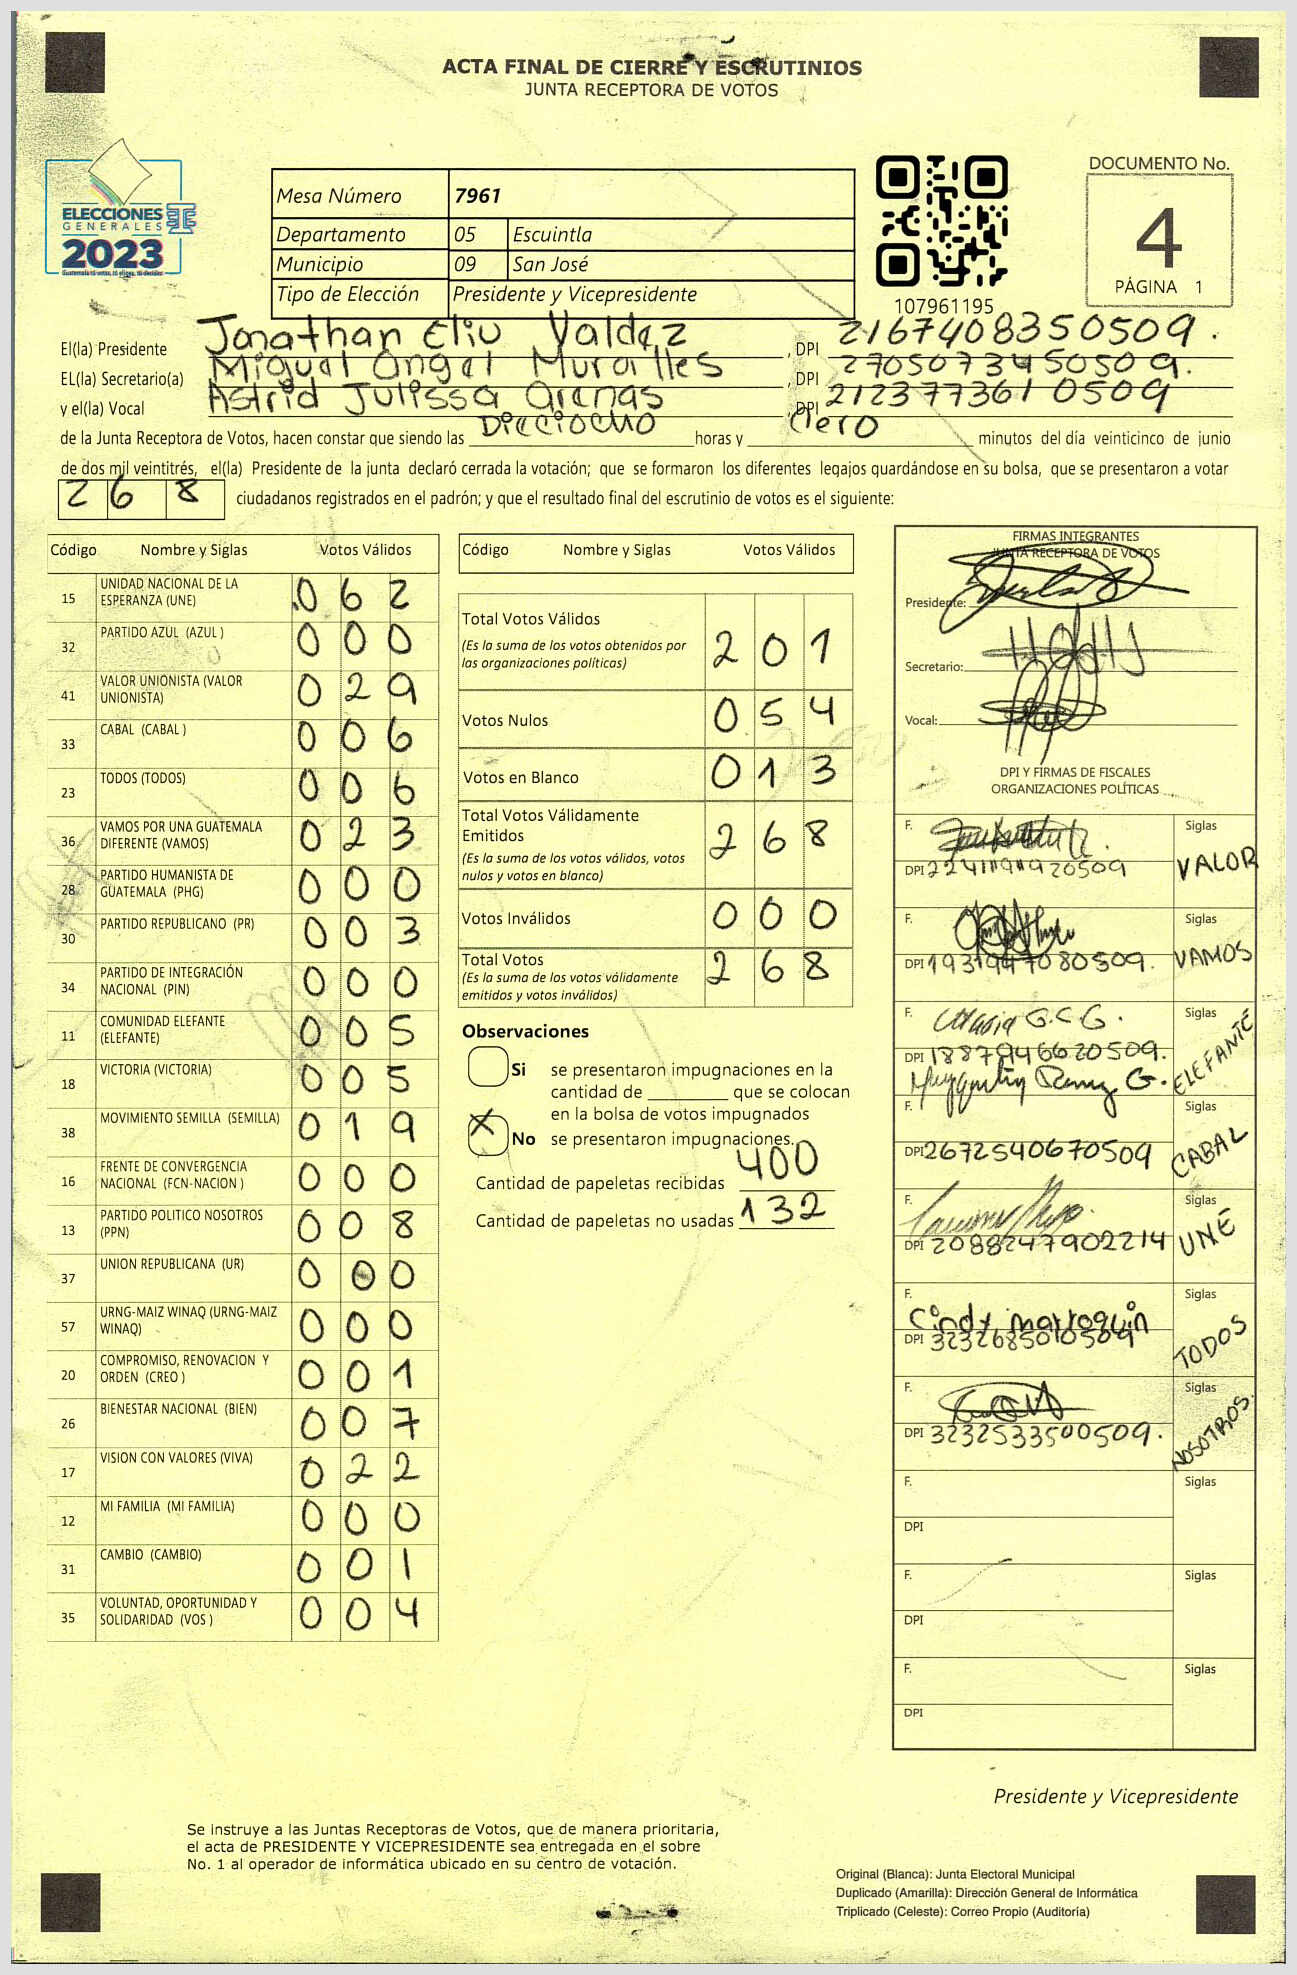 ACTA FINAL DE CIERRE Y ESCRUTINIOS
JUNTA RECEPTORA DE VOTOS
ELECCIONES
GENERALES
2023
Mesa Número 7961
Departamento 05 Escuintla
Municipio 09 San José
Tipo de Elección Presidente y Vicepresidente
107961195
DOCUMENTO No.
4
PÁGINA 1
El(la) Presidente Jonathan Eliu Valdez , DPI 2167408350509.
EL(la) Secretario(a) Miguel Angel Muralles , DPI 2705073450509.
y el(la) Vocal Astrid Julissa Arenas , DPI 2123773610509
de la Junta Receptora de Votos, hacen constar que siendo las Dieciocho horas y Cero minutos del día veinticinco de junio
de dos mil veintitrés, el(la) Presidente de la junta declaró cerrada la votación; que se formaron los diferentes legajos quardándose en su bolsa, que se presentaron a votar
268 ciudadanos registrados en el padrón; y que el resultado final del escrutinio de votos es el siguiente:
Código Nombre y Siglas Votos Válidos
15 UNIDAD NACIONAL DE LA ESPERANZA (UNE) 062
32 PARTIDO AZUL (AZUL ) 000
41 VALOR UNIONISTA (VALOR UNIONISTA) 029
33 CABAL (CABAL ) 006
23 TODOS (TODOS) 006
36 VAMOS POR UNA GUATEMALA DIFERENTE (VAMOS) 023
28 PARTIDO HUMANISTA DE GUATEMALA (PHG) 000
30 PARTIDO REPUBLICANO (PR) 003
34 PARTIDO DE INTEGRACIÓN NACIONAL (PIN) 000
11 COMUNIDAD ELEFANTE (ELEFANTE) 005
18 VICTORIA (VICTORIA) 005
38 MOVIMIENTO SEMILLA (SEMILLA) 019
16 FRENTE DE CONVERGENCIA NACIONAL (FCN-NACION ) 000
13 PARTIDO POLITICO NOSOTROS (PPN) 008
37 UNION REPUBLICANA (UR) 000
57 URNG-MAIZ WINAQ (URNG-MAIZ WINAQ) 000
20 COMPROMISO, RENOVACION Y ORDEN (CREO ) 001
26 BIENESTAR NACIONAL (BIEN) 007
17 VISION CON VALORES (VIVA) 022
12 MI FAMILIA (MI FAMILIA) 000
31 CAMBIO (CAMBIO) 001
35 VOLUNTAD, OPORTUNIDAD Y SOLIDARIDAD (VOS ) 004
Código Nombre y Siglas Votos Válidos
Total Votos Válidos 201
(Es la suma de los votos obtenidos por
las organizaciones políticas)
Votos Nulos 054
Votos en Blanco 013
Total Votos Válidamente
Emitidos 268
(Es la suma de los votos válidos, votos
nulos y votos en blanco)
Votos Inválidos 000
Total Votos 268
(Es la suma de los votos válidamente
emitidos y votos inválidos)
Observaciones
Si se presentaron impugnaciones en la
cantidad de ________ que se colocan
en la bolsa de votos impugnados
X No se presentaron impugnaciones.
Cantidad de papeletas recibidas 400
Cantidad de papeletas no usadas 132
FIRMAS INTEGRANTES
JUNTA RECEPTORA DE VOTOS
Presidente:
Secretario:
Vocal:
DPI Y FIRMAS DE FISCALES
ORGANIZACIONES POLÍTICAS
F. Siglas
DPI VALOR
F. Siglas
DPI VAMOS
F. Maria G.C G. Siglas
DPI 1887946620509. ELEFANTE
F. Siglas
DPI 2672540670509 CABAL
F. Siglas
DPI 2088247902214 UNE
F. Cindy Marroquin Siglas
DPI 3232685010509 TODOS
F. Siglas
DPI 3232533500509. NOSOTROS.
F. Siglas
DPI
F. Siglas
DPI
F. Siglas
DPI
Presidente y Vicepresidente
Se instruye a las Juntas Receptoras de Votos, que de manera prioritaria,
el acta de PRESIDENTE Y VICEPRESIDENTE sea entregada en el sobre
No. 1 al operador de informática ubicado en su centro de votación.
Original (Blanca): Junta Electoral Municipal
Duplicado (Amarilla): Dirección General de Informática
Triplicado (Celeste): Correo Propio (Auditoría)